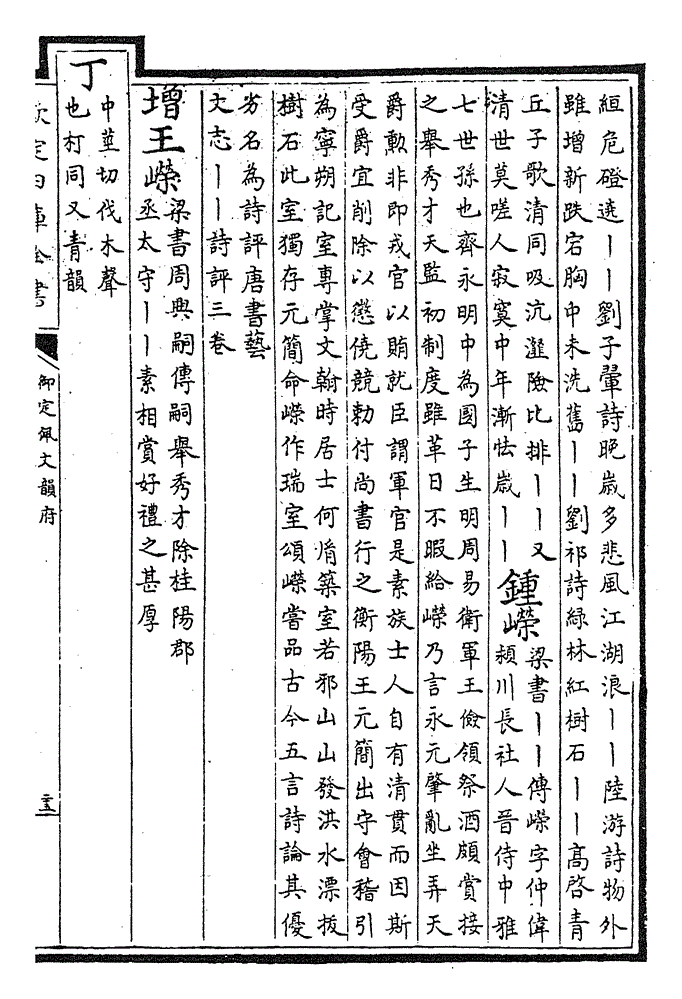 絙危磴遶丨丨劉子翬詩晚歲多悲風江湖浪丨丨陸游詩物外
雖增新跌宕胸中未洗舊丨丨劉祁詩綠林紅樹石丨丨高啓青
丘子歌清同吸沆瀣險比排丨丨又
清世莫嗟人寂寞中年漸怯歲丨丨
鍾嶸
梁書丨丨傳嶸字仲偉
潁川長社人晉侍中雅
七世孫也齊永明中為國子生明周易衛軍王儉領祭酒頗賞接
之舉秀才天監初制度雖革日不暇給嶸乃言永元肇亂坐弄天
爵勲非即戎官以賄就臣謂軍官是素族士人自有清貫而因斯
受爵宜削除以懲僥競勅付尚書行之衡陽王元簡出守會稽引
為寧朔記室專掌文翰時居士何𦙍築室若邪山山發洪水漂拔
樹石此室獨存元簡命嶸作瑞室頌嶸嘗品古今五言詩論其優
劣名為詩評唐書藝
文志丨丨詩評三卷
增王嶸
梁書周興嗣傳嗣舉秀才除桂陽郡
丞太守丨丨素相賞好禮之甚厚
丁
中莖切伐木聲
也朾同又青韻
欽定四庫全書
御定佩文韻府